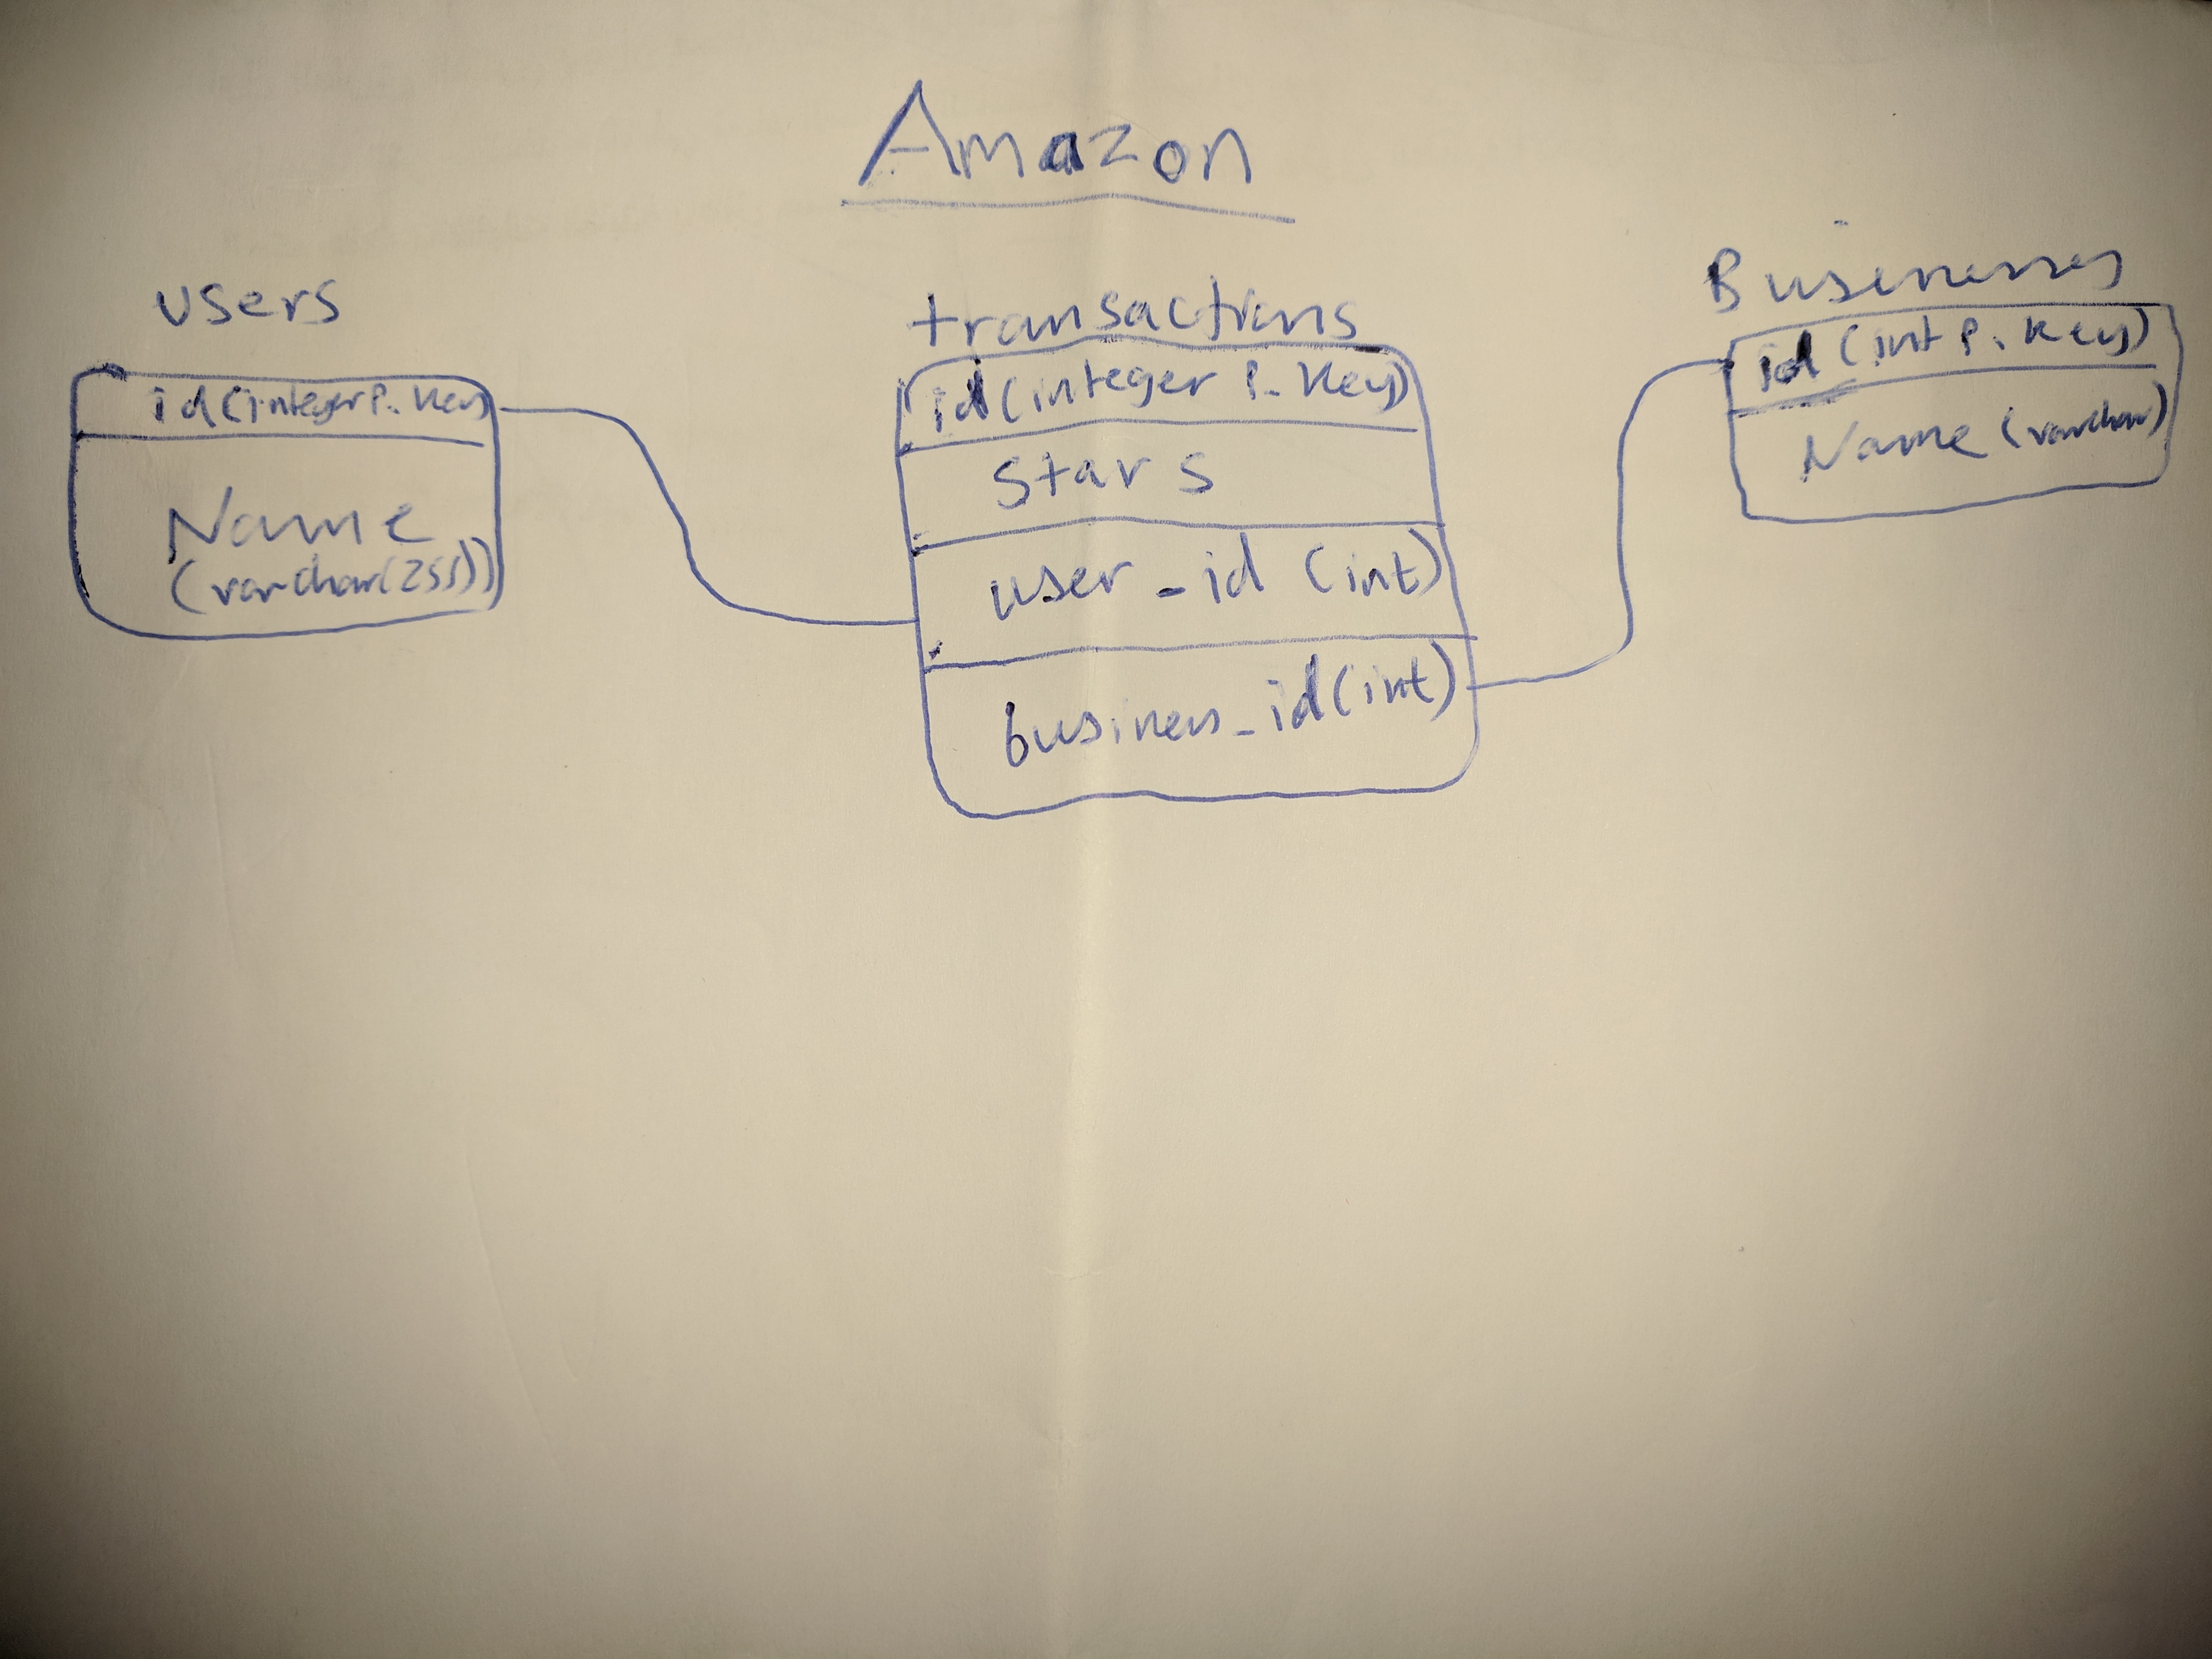 Amazon
users
id(integer P. Key)
Name
(varchar(255))
transactions
id(integer P. Key)
Stars
user_id (int)
business_id(int)
Businesses
id (int P. Key)
Name (varchar)